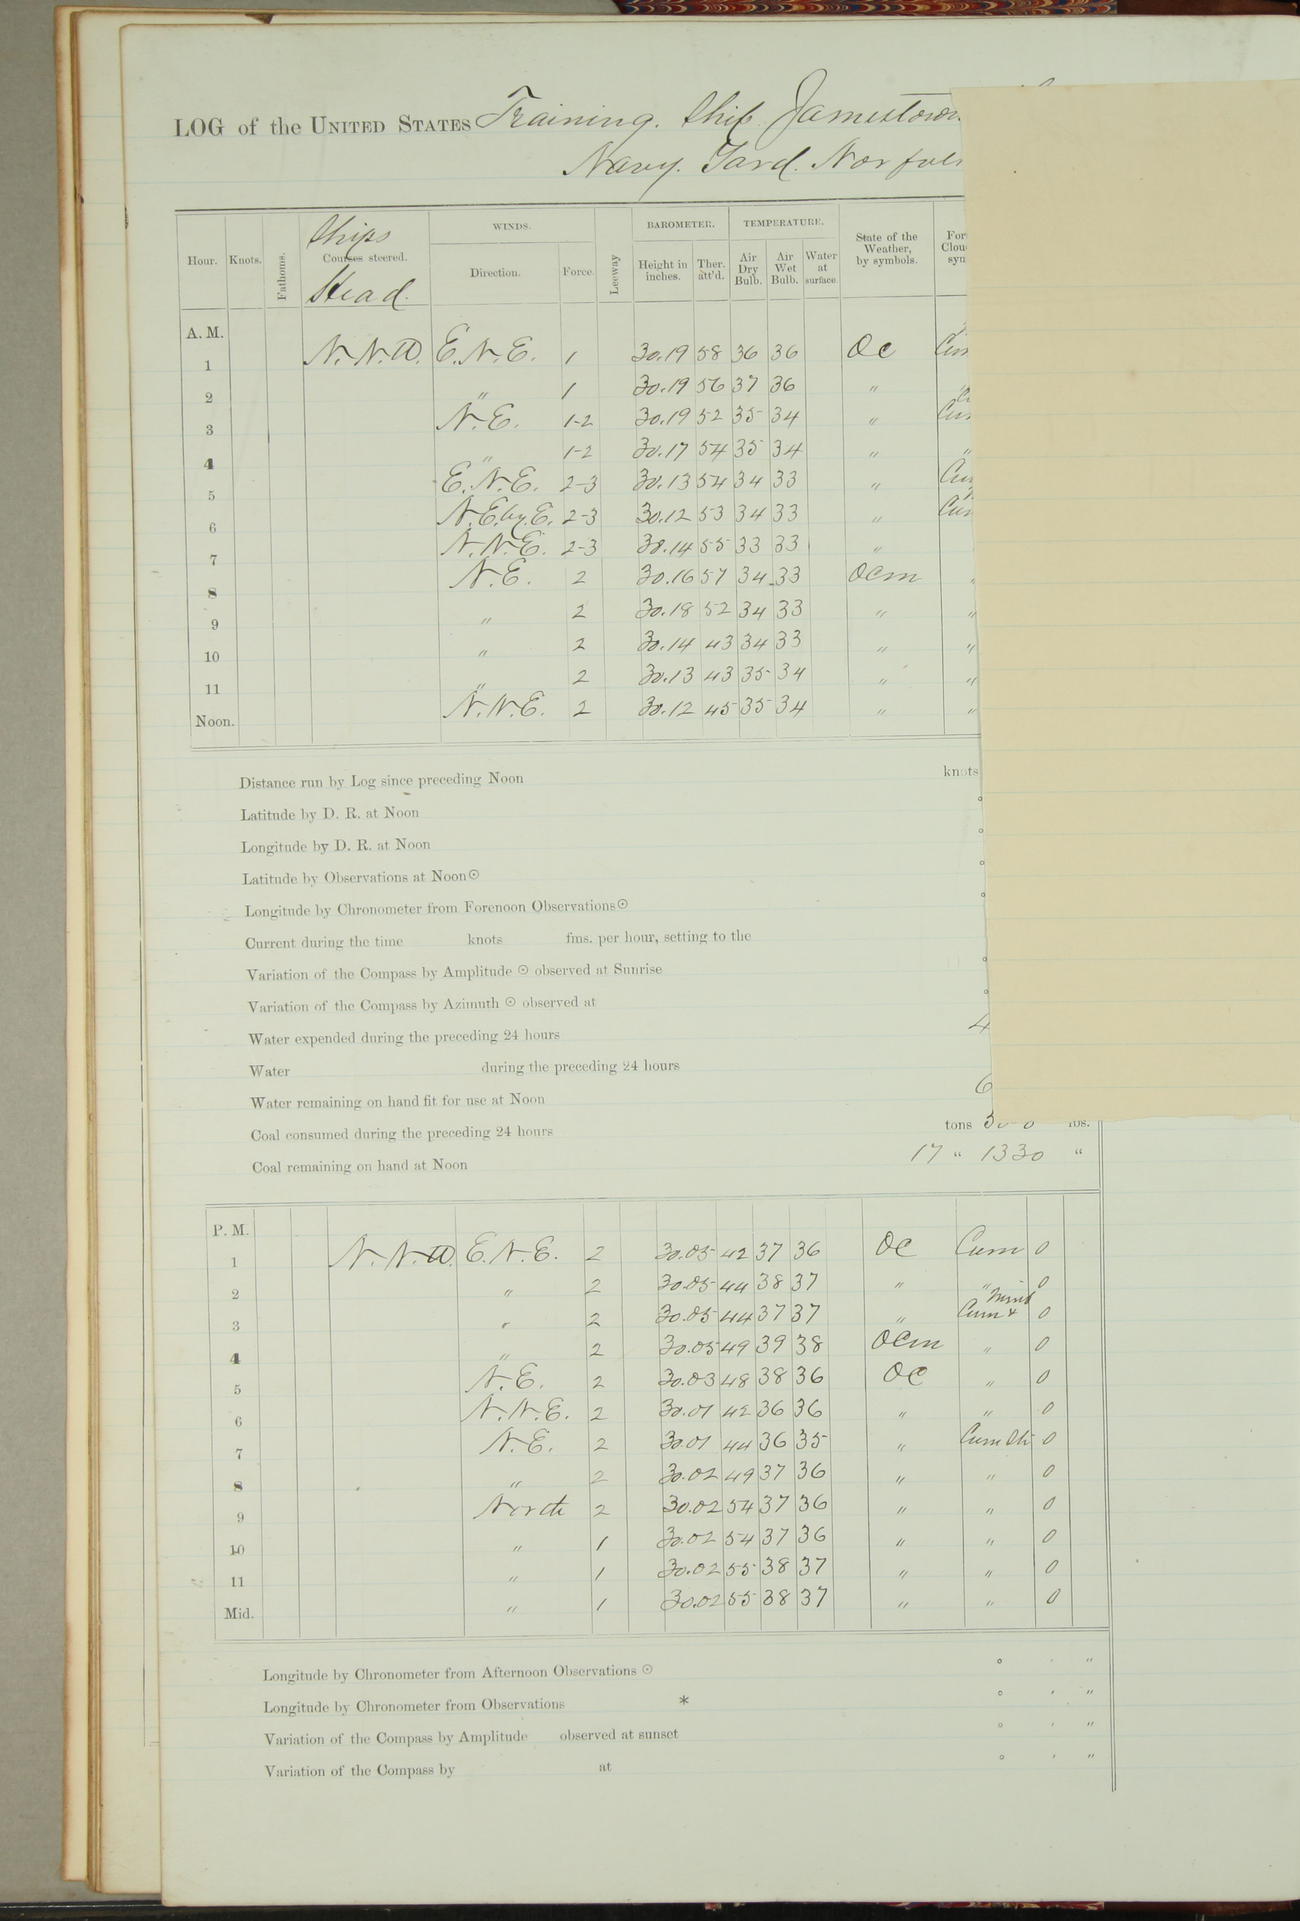 LOG of the UNITED STATES Training. Ship. Jamestown
Navy. Yard. Norfolk
Hour. Knots. Fathoms. Ships Courses steered. Head. WINDS. Direction. Force. Leeway BAROMETER. Height in inches. Ther. att'd. TEMPERATURE. Air Dry Bulb. Air Wet Bulb. Water at surface. State of the Weather, by symbols.
A. M.
1 N.N.W. E.N.E. 1 30.19 58 36 36 OC Cum
2 " 1 30.19 56 37 36 " "
3 N.E. 1-2 30.19 52 35 34 "
4 " 1-2 30.17 54 35 34 " "
5 E.N.E. 2-3 30.13 54 34 33 "
6 N.E.by.E. 2-3 30.12 53 34 33 "
7 N.N.E. 2-3 30.14 55 33 33 "
8 N.E. 2 30.16 57 34 33 OCm "
9 " 2 30.18 52 34 33 " "
10 " 2 30.14 43 34 33 " "
11 " 2 30.13 43 35 34 " "
Noon. N.N.E. 2 30.12 45 35 34 " "
Distance run by Log since preceding Noon knots
Latitude by D. R. at Noon °
Longitude by D. R. at Noon °
Latitude by Observations at Noon ☉ °
Longitude by Chronometer from Forenoon Observations ☉ °
Current during the time knots fms. per hour, setting to the
Variation of the Compass by Amplitude ☉ observed at Sunrise °
Variation of the Compass by Azimuth ☉ observed at °
Water expended during the preceding 24 hours 4
Water during the preceding 24 hours
Water remaining on hand fit for use at Noon 6
Coal consumed during the preceding 24 hours tons lbs.
Coal remaining on hand at Noon 17 " 1330 "
P. M.
1 N.N.W. E.N.E. 2 30.05 42 37 36 OC Cum 0
2 " 2 30.05 44 38 37 " " 0
3 " 2 30.05 44 37 37 " Cum & Nimb 0
4 " 2 30.05 49 39 38 OCm " 0
5 N.E. 2 30.03 48 38 36 OC " 0
6 N.N.E. 2 30.01 42 36 36 " " 0
7 N.E. 2 30.01 44 36 35 " Cum Str 0
8 " 2 30.02 49 37 36 " " 0
9 North 2 30.02 54 37 36 " " 0
10 " 1 30.02 54 37 36 " " 0
11 " 1 30.02 55 38 37 " " 0
Mid. " 1 30.02 55 38 37 " " 0
Longitude by Chronometer from Afternoon Observations ☉ ° ' "
Longitude by Chronometer from Observations * ° ' "
Variation of the Compass by Amplitude observed at sunset ° ' "
Variation of the Compass by at ° ' "